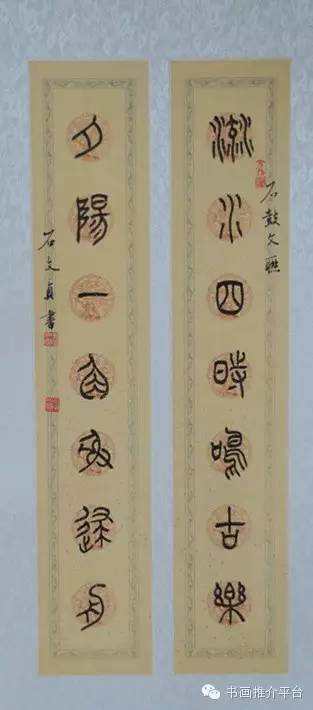 石鼓文聯
流水四時鳴古樂
夕陽一舟
石文貞書
书画推介平台